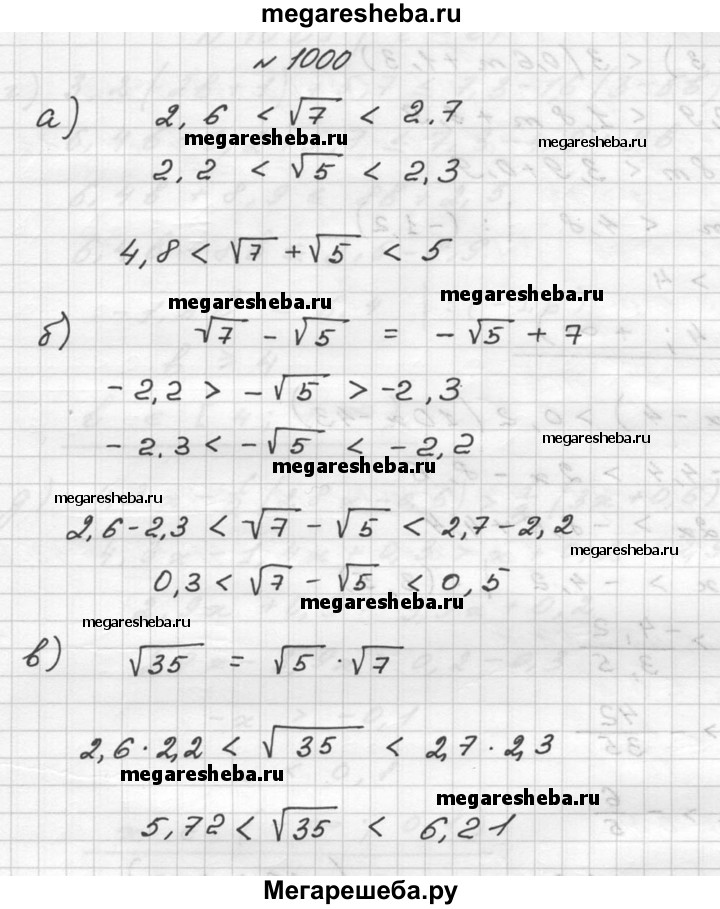 megaresheba.ru
№ 1000
а) 2,6 < √7 < 2.7
megaresheba.ru
megaresheba.ru
2,2 < √5 < 2,3
4,8 < √7 + √5 < 5
megaresheba.ru
megaresheba.ru
б) √7 - √5 = - √5 + 7
- 2,2 > - √5 > -2,3
- 2.3 < - √5 < - 2,2
megaresheba.ru
megaresheba.ru
megaresheba.ru
2,6 - 2,3 < √7 - √5 < 2,7 - 2,2
megaresheba.ru
0,3 < √7 - √5 < 0,5
megaresheba.ru
megaresheba.ru
в) √35 = √5 · √7
2,6 · 2,2 < √35 < 2,7 · 2,3
megaresheba.ru
megaresheba.ru
5,72 < √35 < 6,21
Мегарешеба.ру